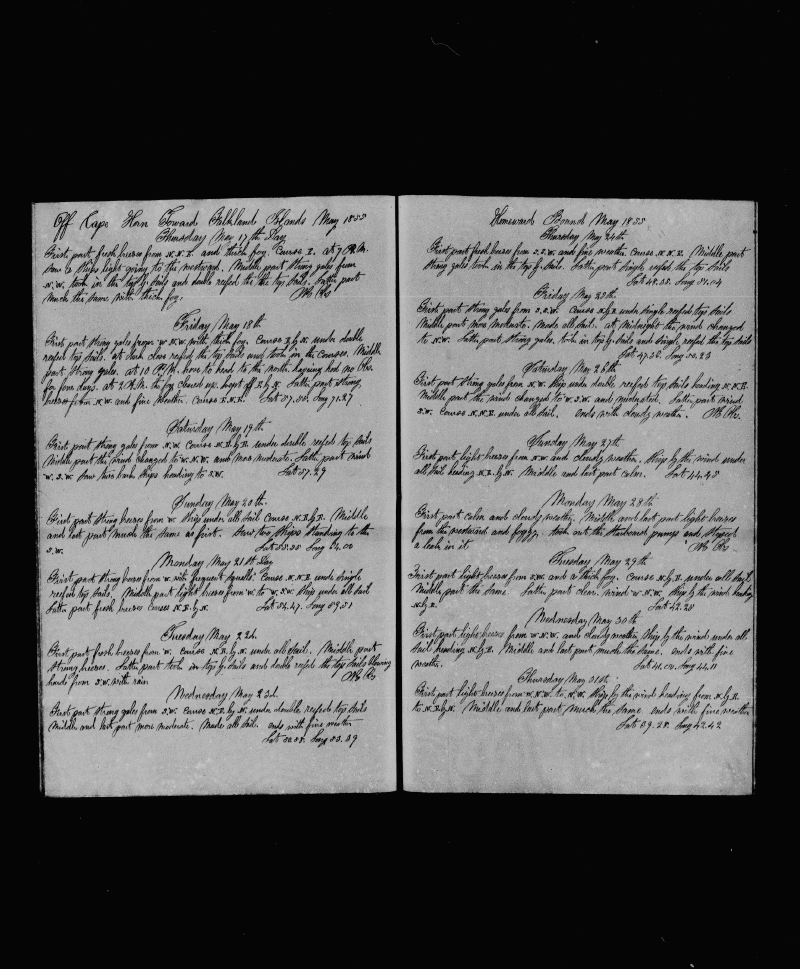 Off Cape Horn Toward Falkland Islands May 1855
Thursday May 17th Day
First part fresh breeze from N.N.E. and thick fog. Course E. at 7 P.M.
saw a Ships light going to the westward. Middle part strong gales from
N.W. took in the top g. sails and double reefed the top sails. Latter part
much the same with thick fog. No Obs
Friday May 18th
First part strong gales from W.N.W. with thick fog. Course E by N. under double
reefed top sails. at dark close reefed the top sails and took in the courses. Middle
part strong gales. at 10 P.M. hove to heads to the north having had no Obs.
for four days. at 2 A.M. the fog cleared up. kept off E by N. Latter part strong
breeze from N.W. and fine weather. Course E.N.E. Long 71.27
Saturday May 19th
First part strong gales from N.W. Course N.E. by E. under double reefed top sails
Middle part the wind changed to W.N.W. and more moderate. Latter part wind
W.S.W. Saw two bark Ships heading to S.W. Lat 57.29
Sunday May 20th
First part strong breeze from W. Ship under all sail Course N.E. by E. Middle
and last part much the same as first. Saw two Ships standing to the
S.W. Lat 55.35 Long 64.00
Monday May 21st Day
First part strong breeze from W. with frequent squalls. Course N.N.E. under single
reefed top sails. Middle part light breeze from W. to W.S.W. Ship under all sail
Latter part fresh breeze Course N.E. by N. Lat 54.47. Long 59.51
Tuesday May 22d.
First part fresh breeze from W. Course N.E. by N. under all sail. Middle part
strong breeze. Latter part took in top g. sails and double reefed the top sails blowing
hard from S.W. with rain No Obs
Wednesday May 23d.
First part strong gales from S.W. Course N.E. by N. under double reefed top sails
Middle and last part more moderate. Made all sail. ends with fine weather
Lat 50.55. Long 53.39
Homeward Bound May 1855
Thursday May 24th
First part fresh breeze from S.S.W. and fine weather. Course N.N.E. Middle part
strong gales took in the top g. sails. Latter part single reefed the top sails
Lat 48.55. Long 51.04
Friday May 25th.
First part strong gales from S.S.W. Course N.E. by N. under single reefed top sails
Middle part more moderate. Made all sail. at midnight the wind changed
to N.W. Latter part strong gales. took in top g. sails and single reefed the top sails
Lat 47.26. Long 50.23
Saturday May 26th
First part strong gales from N.W. Ship under double reefed top sails heading N.N.E.
Middle part the wind changed to W.S.W. and moderated. Latter part wind
S.W. Course N.N.E. under all sail. ends with cloudy weather. No Obs.
Sunday May 27th
First part light breeze from N.W. and cloudy weather. Ship by the wind under
all sail heading N.E. by N. Middle and last part calm. Lat 44.48
Monday May 28th
First part calm and cloudy weather. Middle and last part light breeze
from the westward and foggy. took out the starboard pumps and stopped
a leak in it No Obs
Tuesday May 29th
First part light breeze from S.W. and a thick fog. Course N. by E. under all sail
Middle part the same. Latter part clear. wind W.N.W. Ship by the wind heading
N. by E. Lat 42.28
Wednesday May 30th
First part light breeze from W.N.W. and cloudy weather. Ship by the wind under all
sail heading N. by E. Middle and last part much the same. ends with fine
weather. Lat 41.04. Long 44.11
Thursday May 31st
First part light breeze from W.N.W. to N.W. Ship by the wind heading from N. by E.
to N.E. by N. Middle and last part much the same ends with fine weather
Lat 39.28. Long 42.42